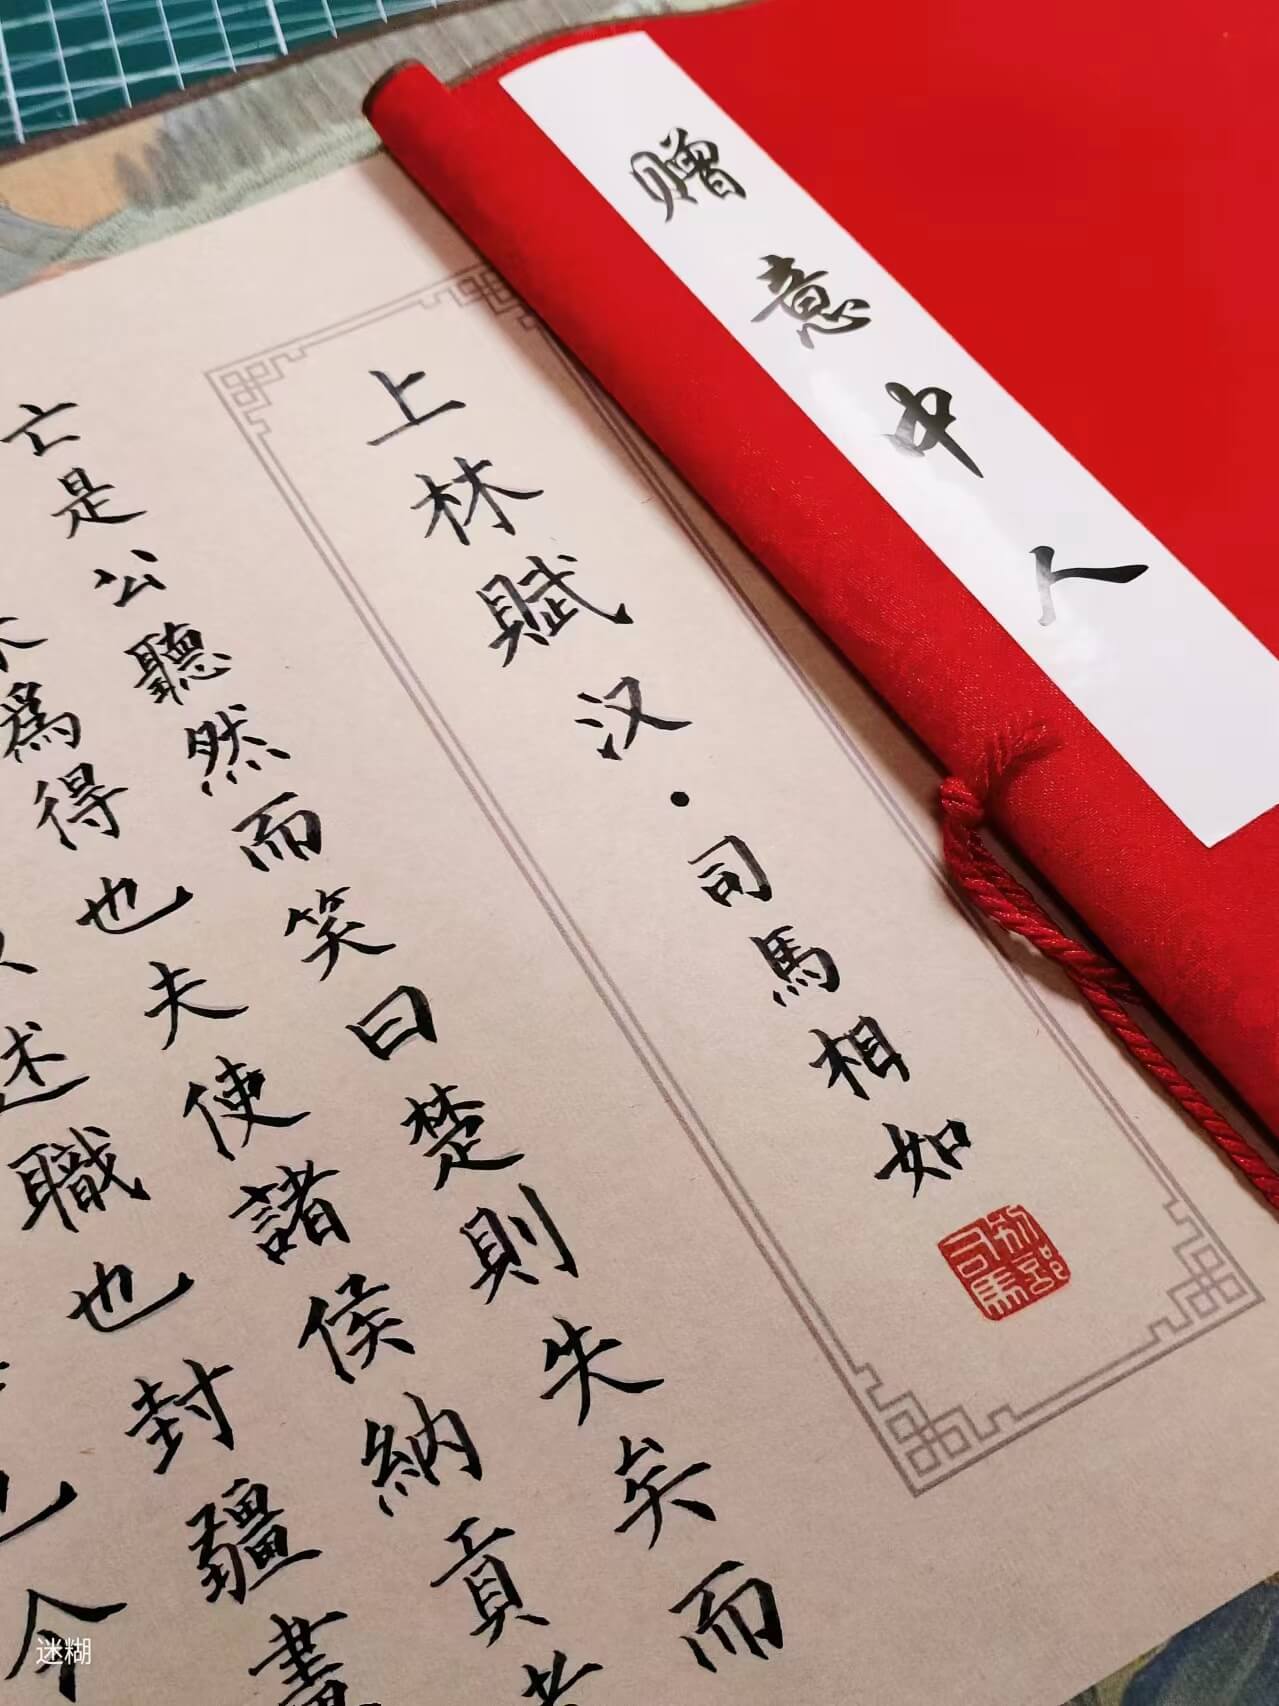 赠意中人
上林賦 汉·司馬相如
亡是公聽然而笑曰楚則失矣而
爲得也夫使諸侯納貢者
述職也封疆畫
今
迷糊